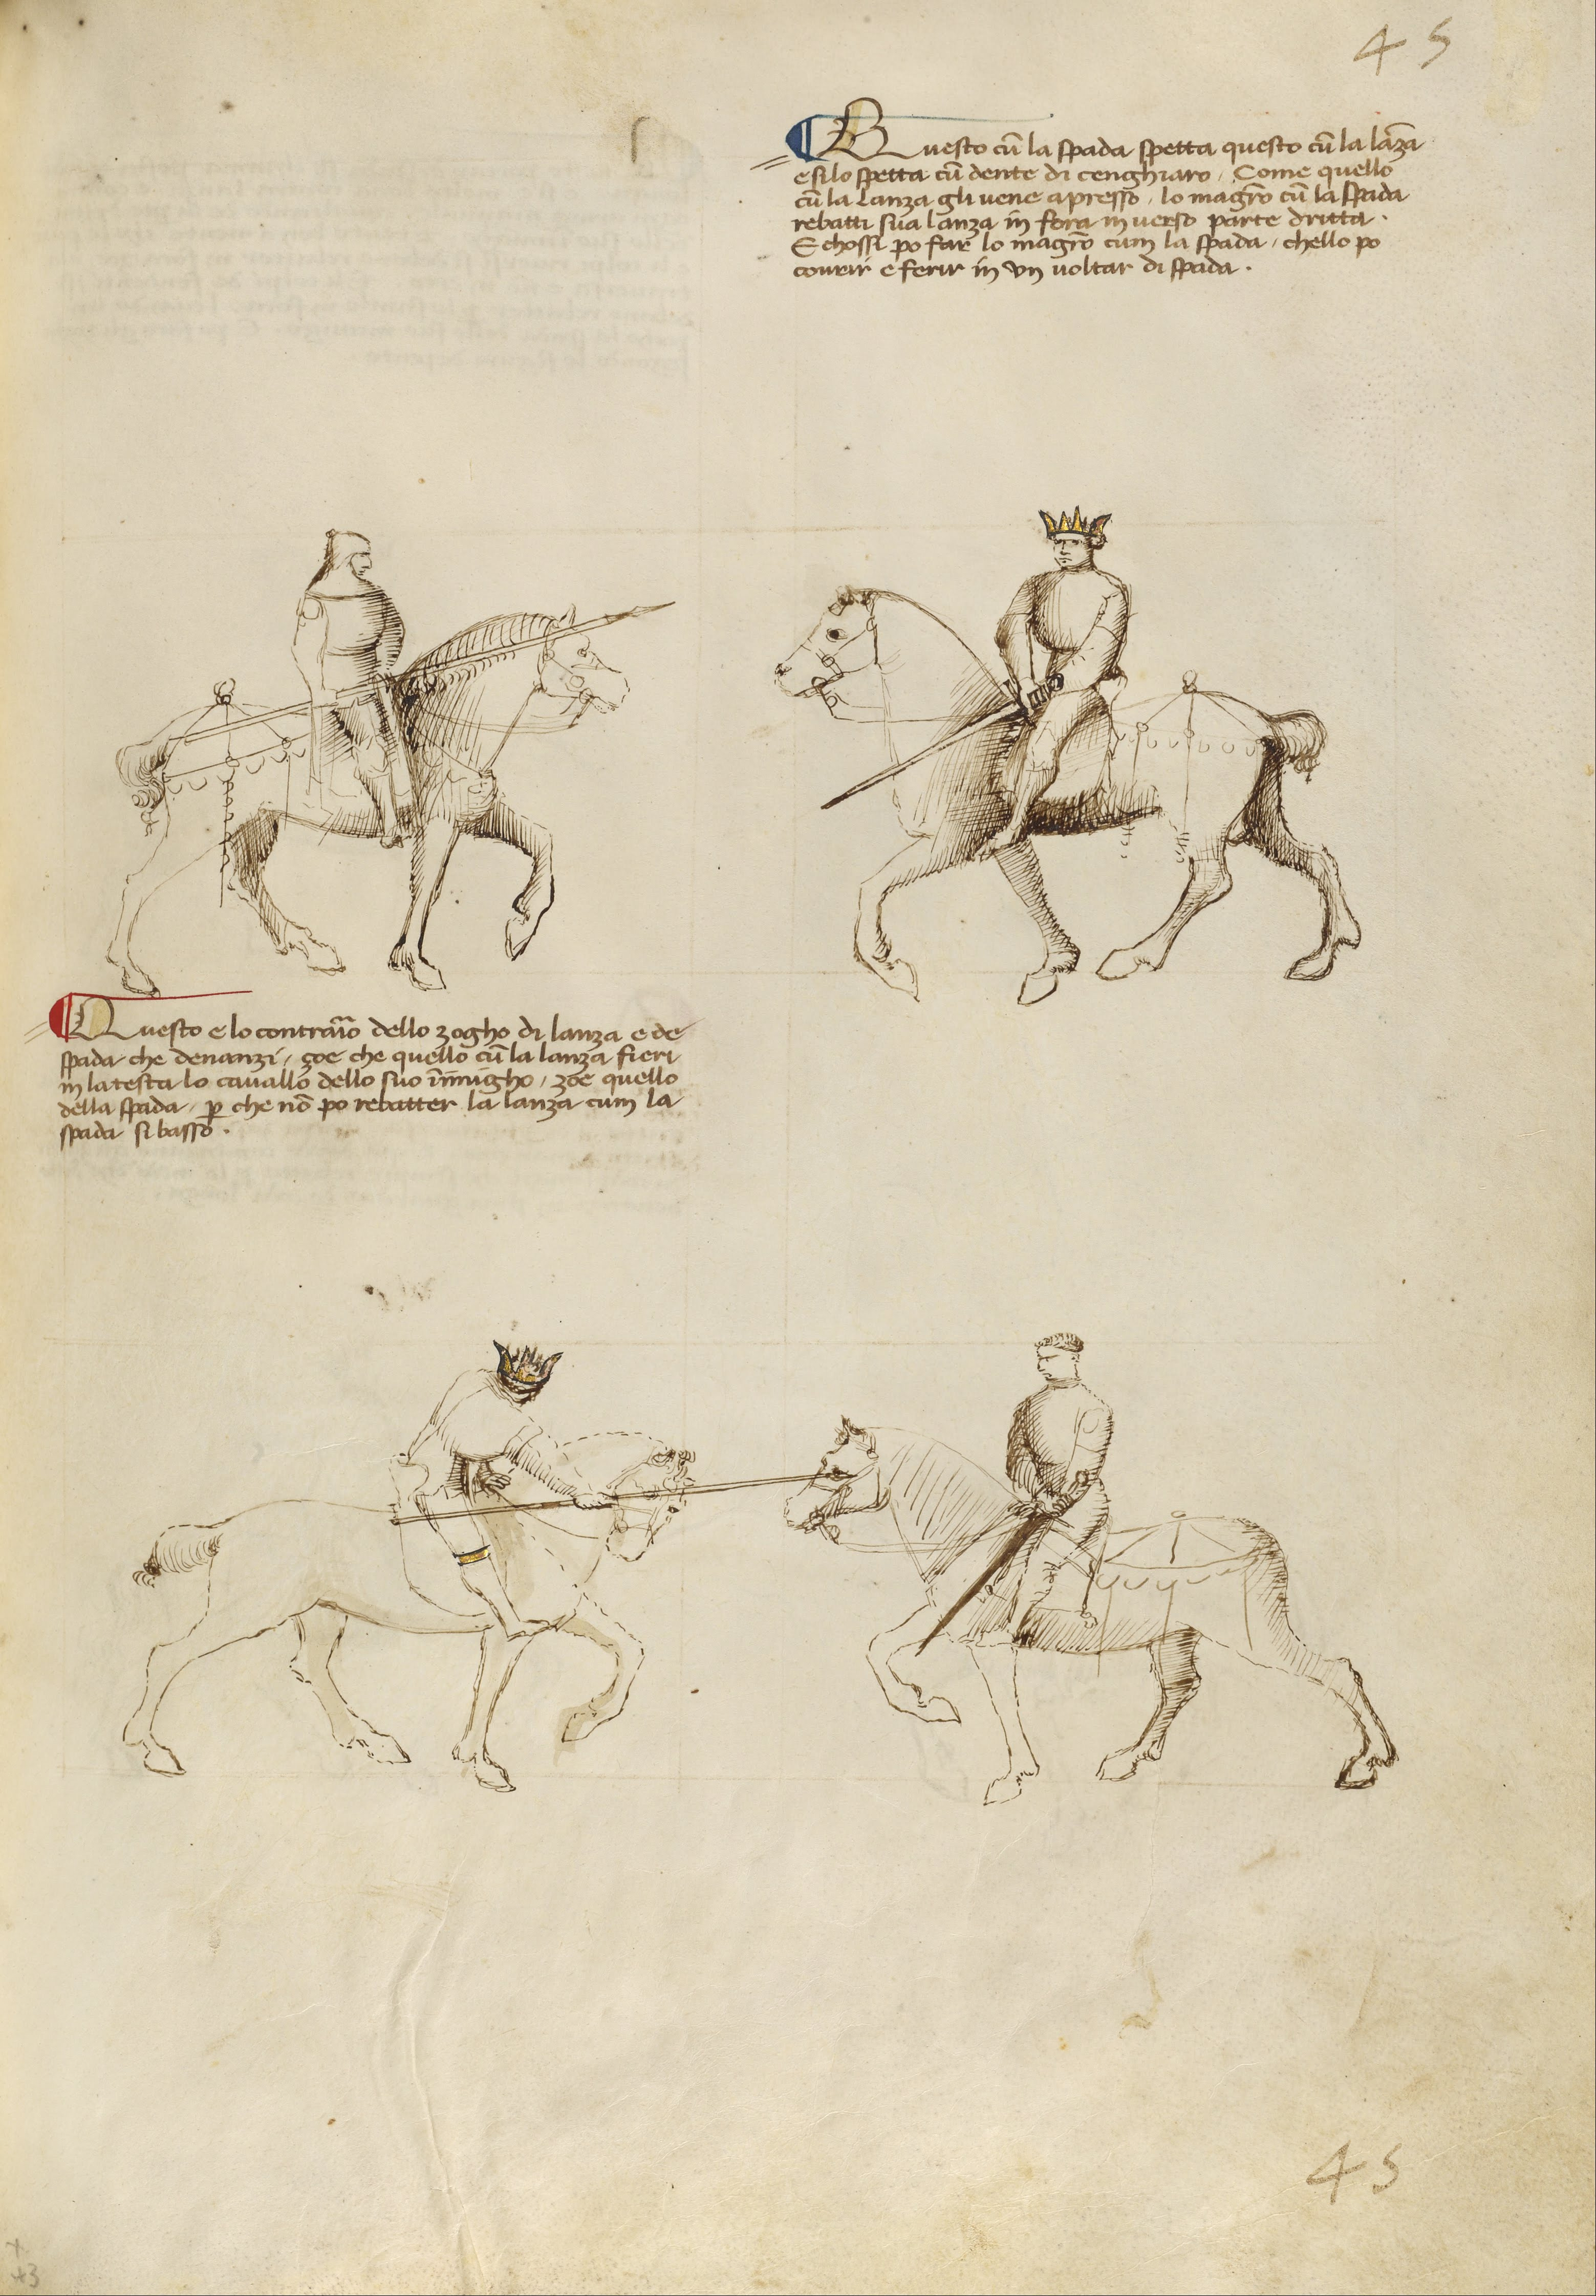 45
Questo cū la spada spetta questo cū la lāza
e si lo spetta cū dente di cenghiaro, Come quello
cū la lanza gli vene apresso, lo magr̄o cū la spada
rebatti sua lanza in fora inverso parte dritta.
E chossi po far lo magr̄o cum la spada, chello po
covrir e ferir in vn voltar di spada.
Questo e lo contraīo dello zogho di lanza e de
spada che denanzi, zoe che quello cū la lanza fieri
in la testa lo cavallo dello suo īnimigho, zoe quello
della spada, ꝑ che nō po rebatter la lanza cum la
spada si basso.
45
43